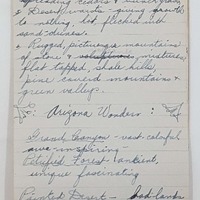 spreading cedars &
& Desert wastes giving growth
to nothing, but flecked with
sand-dunes.
& Rugged, picturesque mountains
of stone & miniature
flat topped, shale hills
pine covered mountains &
green valleys.
C: Arizona Wonders:
Grand Canyon - vast, colorful
awe inspiring -
Petrified Forest - ancient,
unique fascinating
Painted Desert - bad lands